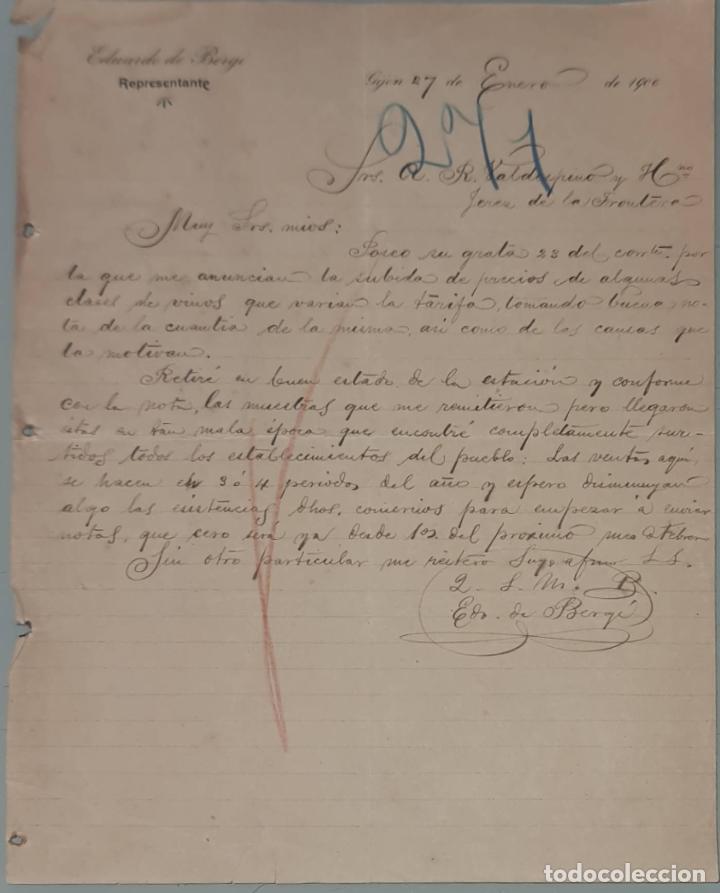 Eduardo de Bergé
Representante
Gijón 27 de Enero de 1900
2971
Srs. A. R. Valdespino y Hno
Jerez de la Frontera
Muy Srs. mios:
Poseo su grata 23 del corrte. por
la que me anuncian la subida de precios de algunas
clases de vinos que varian la tarifa, tomando buena no-
ta de la cuantia de la misma, asi como de las causas que
la motivan.
Retiré en buen estado de la estación y conforme
con la nota, las muestras que me remitieron pero llegaron
estas en tan mala época que encontré completamente sur-
tidos todos los establecimientos del pueblo: Las ventas aqui,
se hacen en 3 ó 4 periodos del año y espero disminuyan
algo las existencias dhos. comercios para empezar á enviar
notas, que creo será ya desde 1os del proximo mes Febrero
Sin otro particular me reitero Suyo afmo S. S.
Q. S. M. B.
Edo. de Bergé
todocoleccion.net